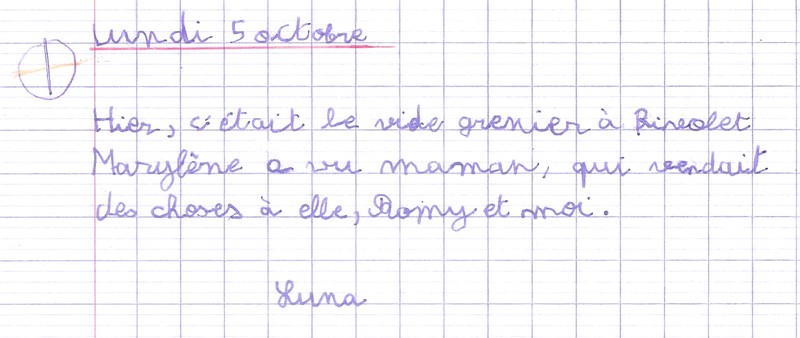 Lundi 5 octobre
Hier, c'était le vide grenier à Rivolet
Marylène a vu maman, qui vendait
des choses à elle, Romy et moi.
Luna